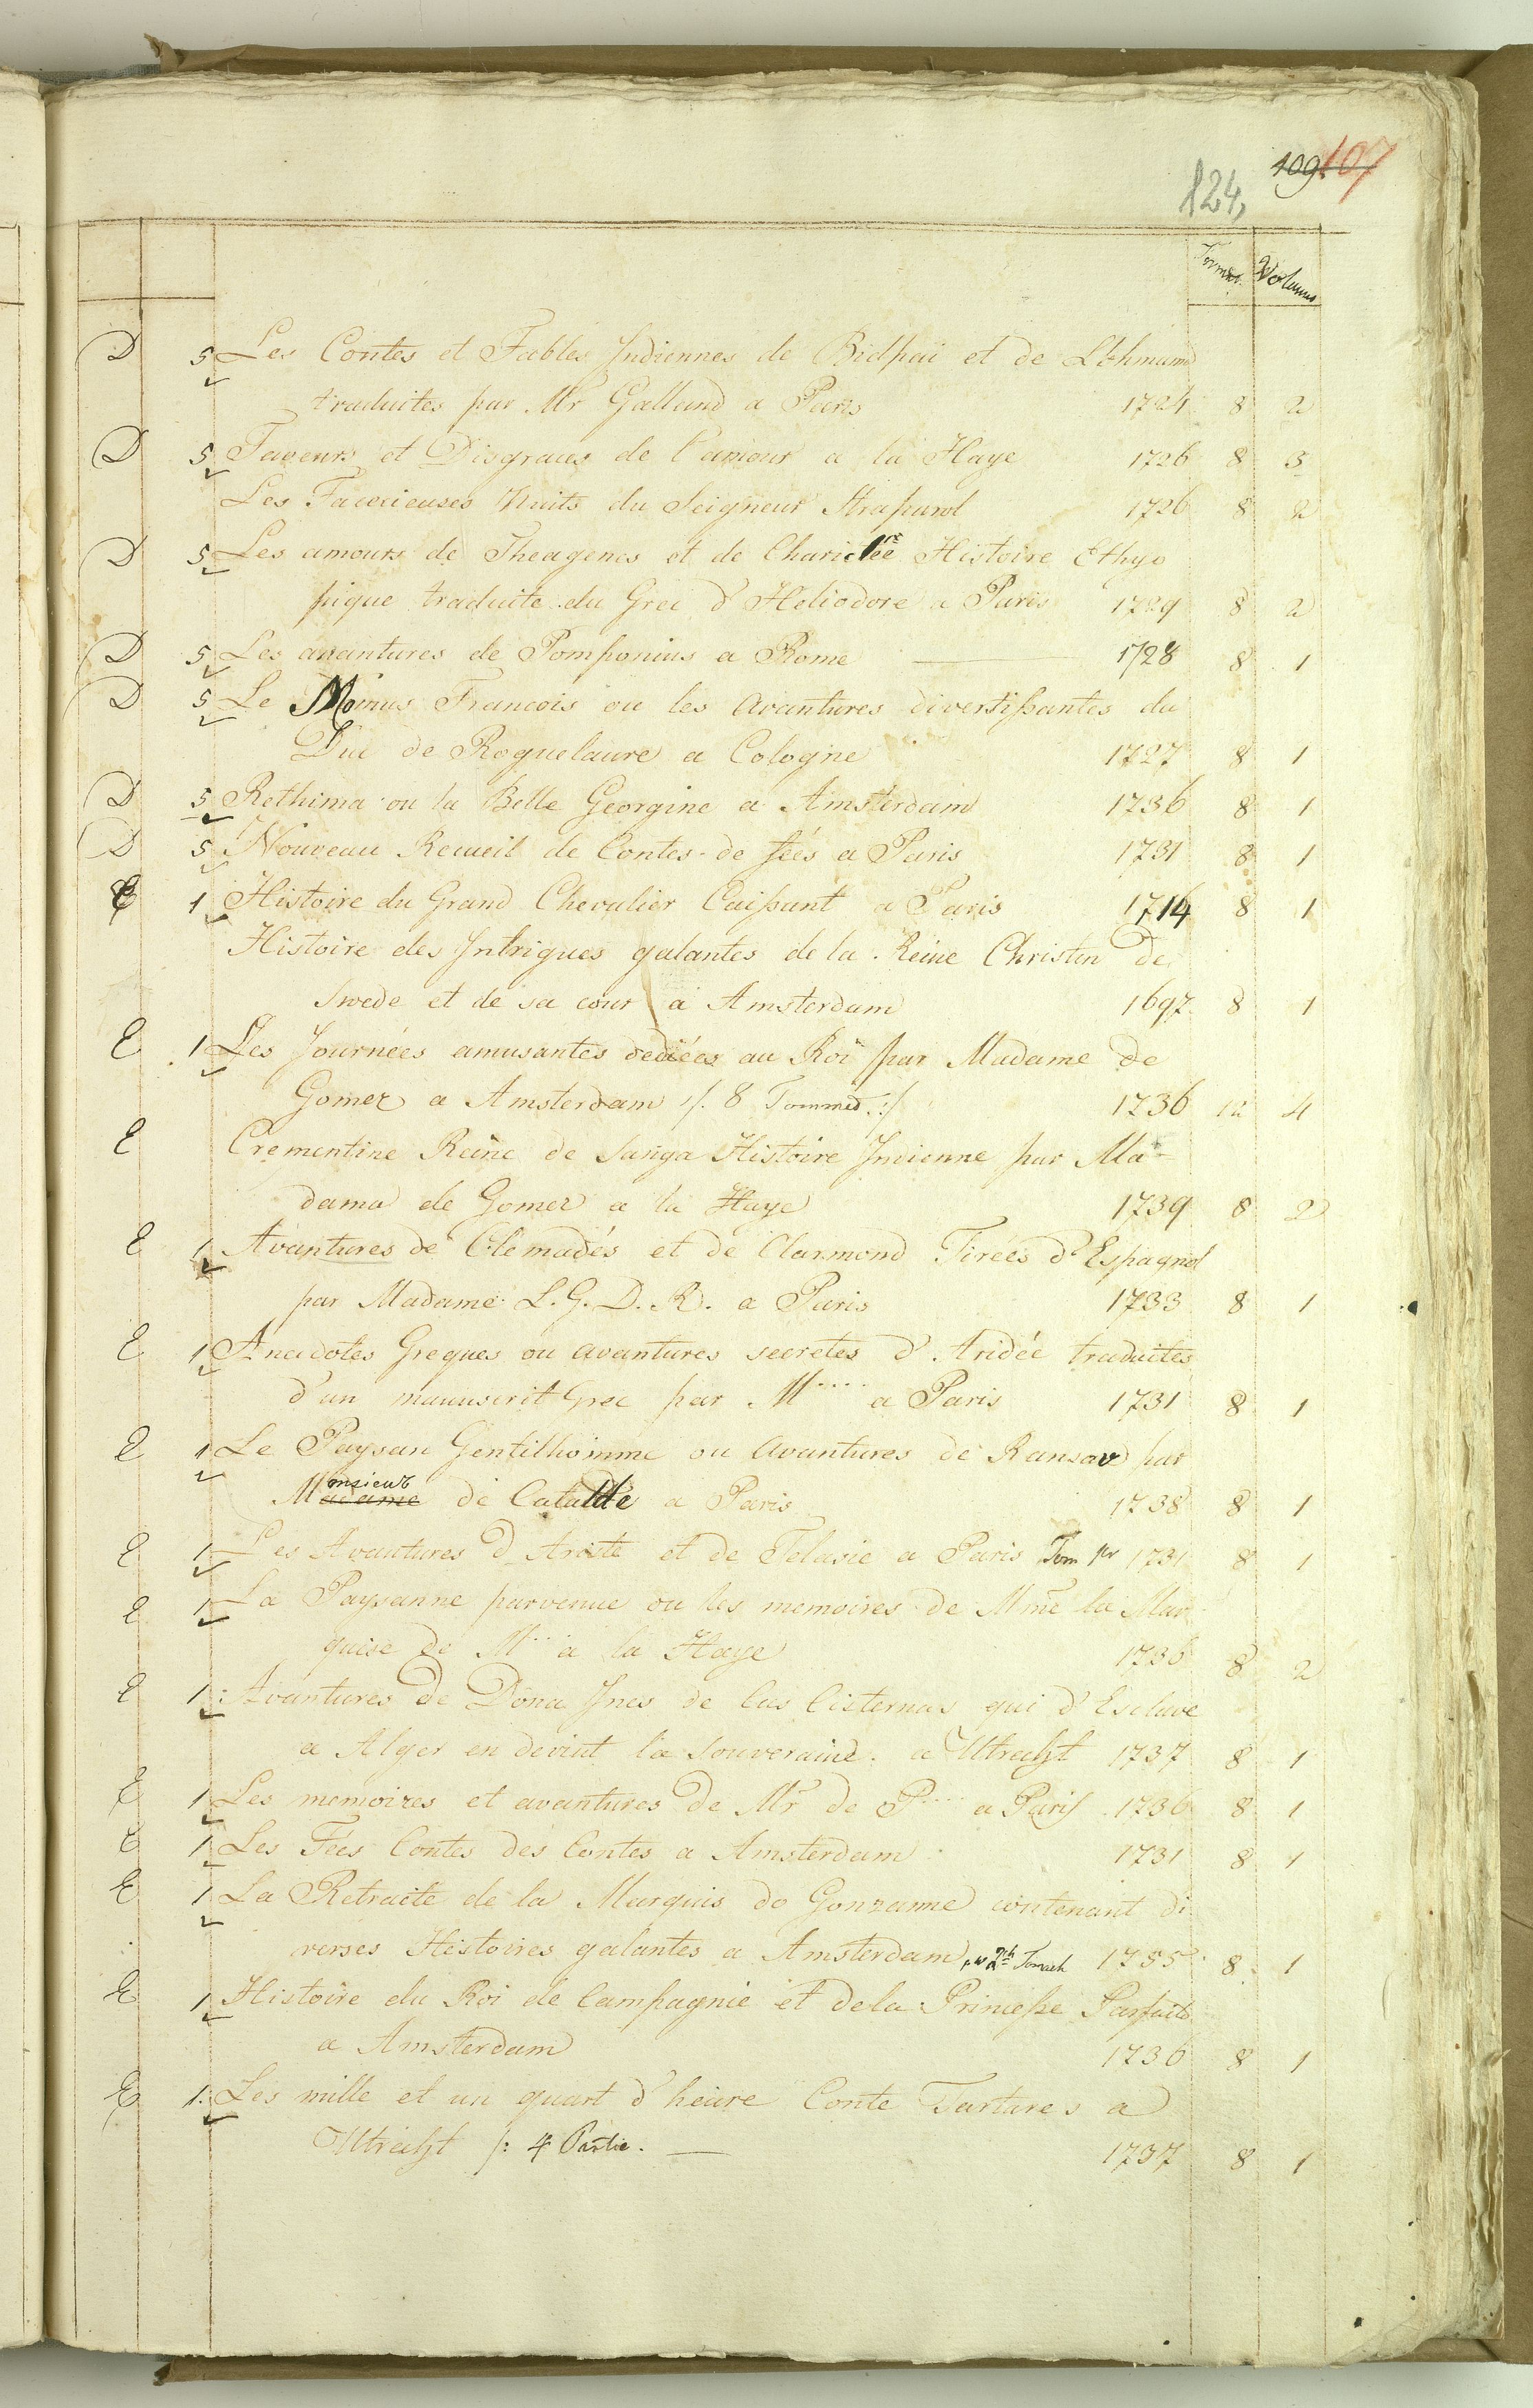 109. 107
124,
Format. Volumes
D 5 Les Contes et Fables Indiennes de Bidpai et de Lokmann
traduites par Mr Galland a Paris 1724 8 2
D 5 Faveurs et Disgraces de l'amour a la Haye 1726 8 3
Les Facecieuses Nuits du Seigneur Straparol 1726 8 2
D 5 Les amours de Theagenes et de Charicleé Histoire Ethyo
pique traduite du Grec d'Heliodore a Paris 1729 8 2
D 5 Les avantures de Pomponius a Rome — 1728 8 1
D 5 Le Momus Francois ou les Avantures divertissantes du
Duc de Roquelaure a Cologne 1727 8 1
D 5 Rethima ou la Belle Georgine a Amsterdam 1736 8 1
D 5 Nouveau Recueil de Contes de feés a Paris 1731 8 1
E 1 Histoire du Grand Chevalier Caissant a Paris 1714 8 1
Histoire des Intrigues galantes de la Reine Christin de
Swede et de sa cour a Amsterdam 1697 8 1
E 1 Les Journées amusantes dediées au Roi par Madame de
Gomez a Amsterdam /. 8 Tommed :/ 1736 12 4
E Crementine Reine de Sanga Histoire Indienne par Ma-
dama de Gomez a la Haye 1739 8 2
E 1 Avantures de Clemadés et de Clarmond Tirées d'Espagnol
par Madame L. G. D. R. a Paris 1733 8 1
E 1 Anecdotes Greques ou avantures secretes d'Aridée traduites
d'un manuscrit Grec par M.... a Paris 1731 8 1
E 1 Le Paysan Gentilhomme ou Avantures de Ransav par
Madame onsieur de Catalde a Paris 1738 8 1
E 1 Les Avantures d'Ariste et de Telasie a Paris Tom pr 1731 8 1
E 1 La Paysanne parvenue ou les memoires de Mme la Mar
quise de M... a la Haye 1736 8 2
E 1 Avantures de Dona Ines de las Cisternas qui d'Esclave
a Alger en devint la souveraine. a Utrecht 1737 8 1
E 1 Les memoires et avantures de Mr de P.... a Paris 1736 8 1
E 1 Les Fees Contes des Contes a Amsterdam 1731 8 1
E 1 La Retraite de la Marquis de Gonzanne contenant di
verses Histoires galantes a Amsterdam, w 2ch Tomach 1735 8 1
E 1 Histoire du Roi de Campagnie et de la Princesse Parfaite
a Amsterdam 1736 8 1
E 1. Les mille et un quart d'heure Conte Tartares a
Utrecht /: 4 Partie. — 1737 8 1